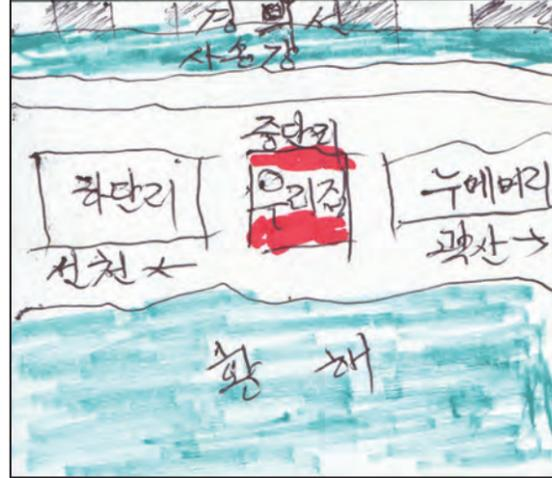 경의선
사송강
중단리
하단리
우리집
누에머리
선천 ←
곽산 →
황해